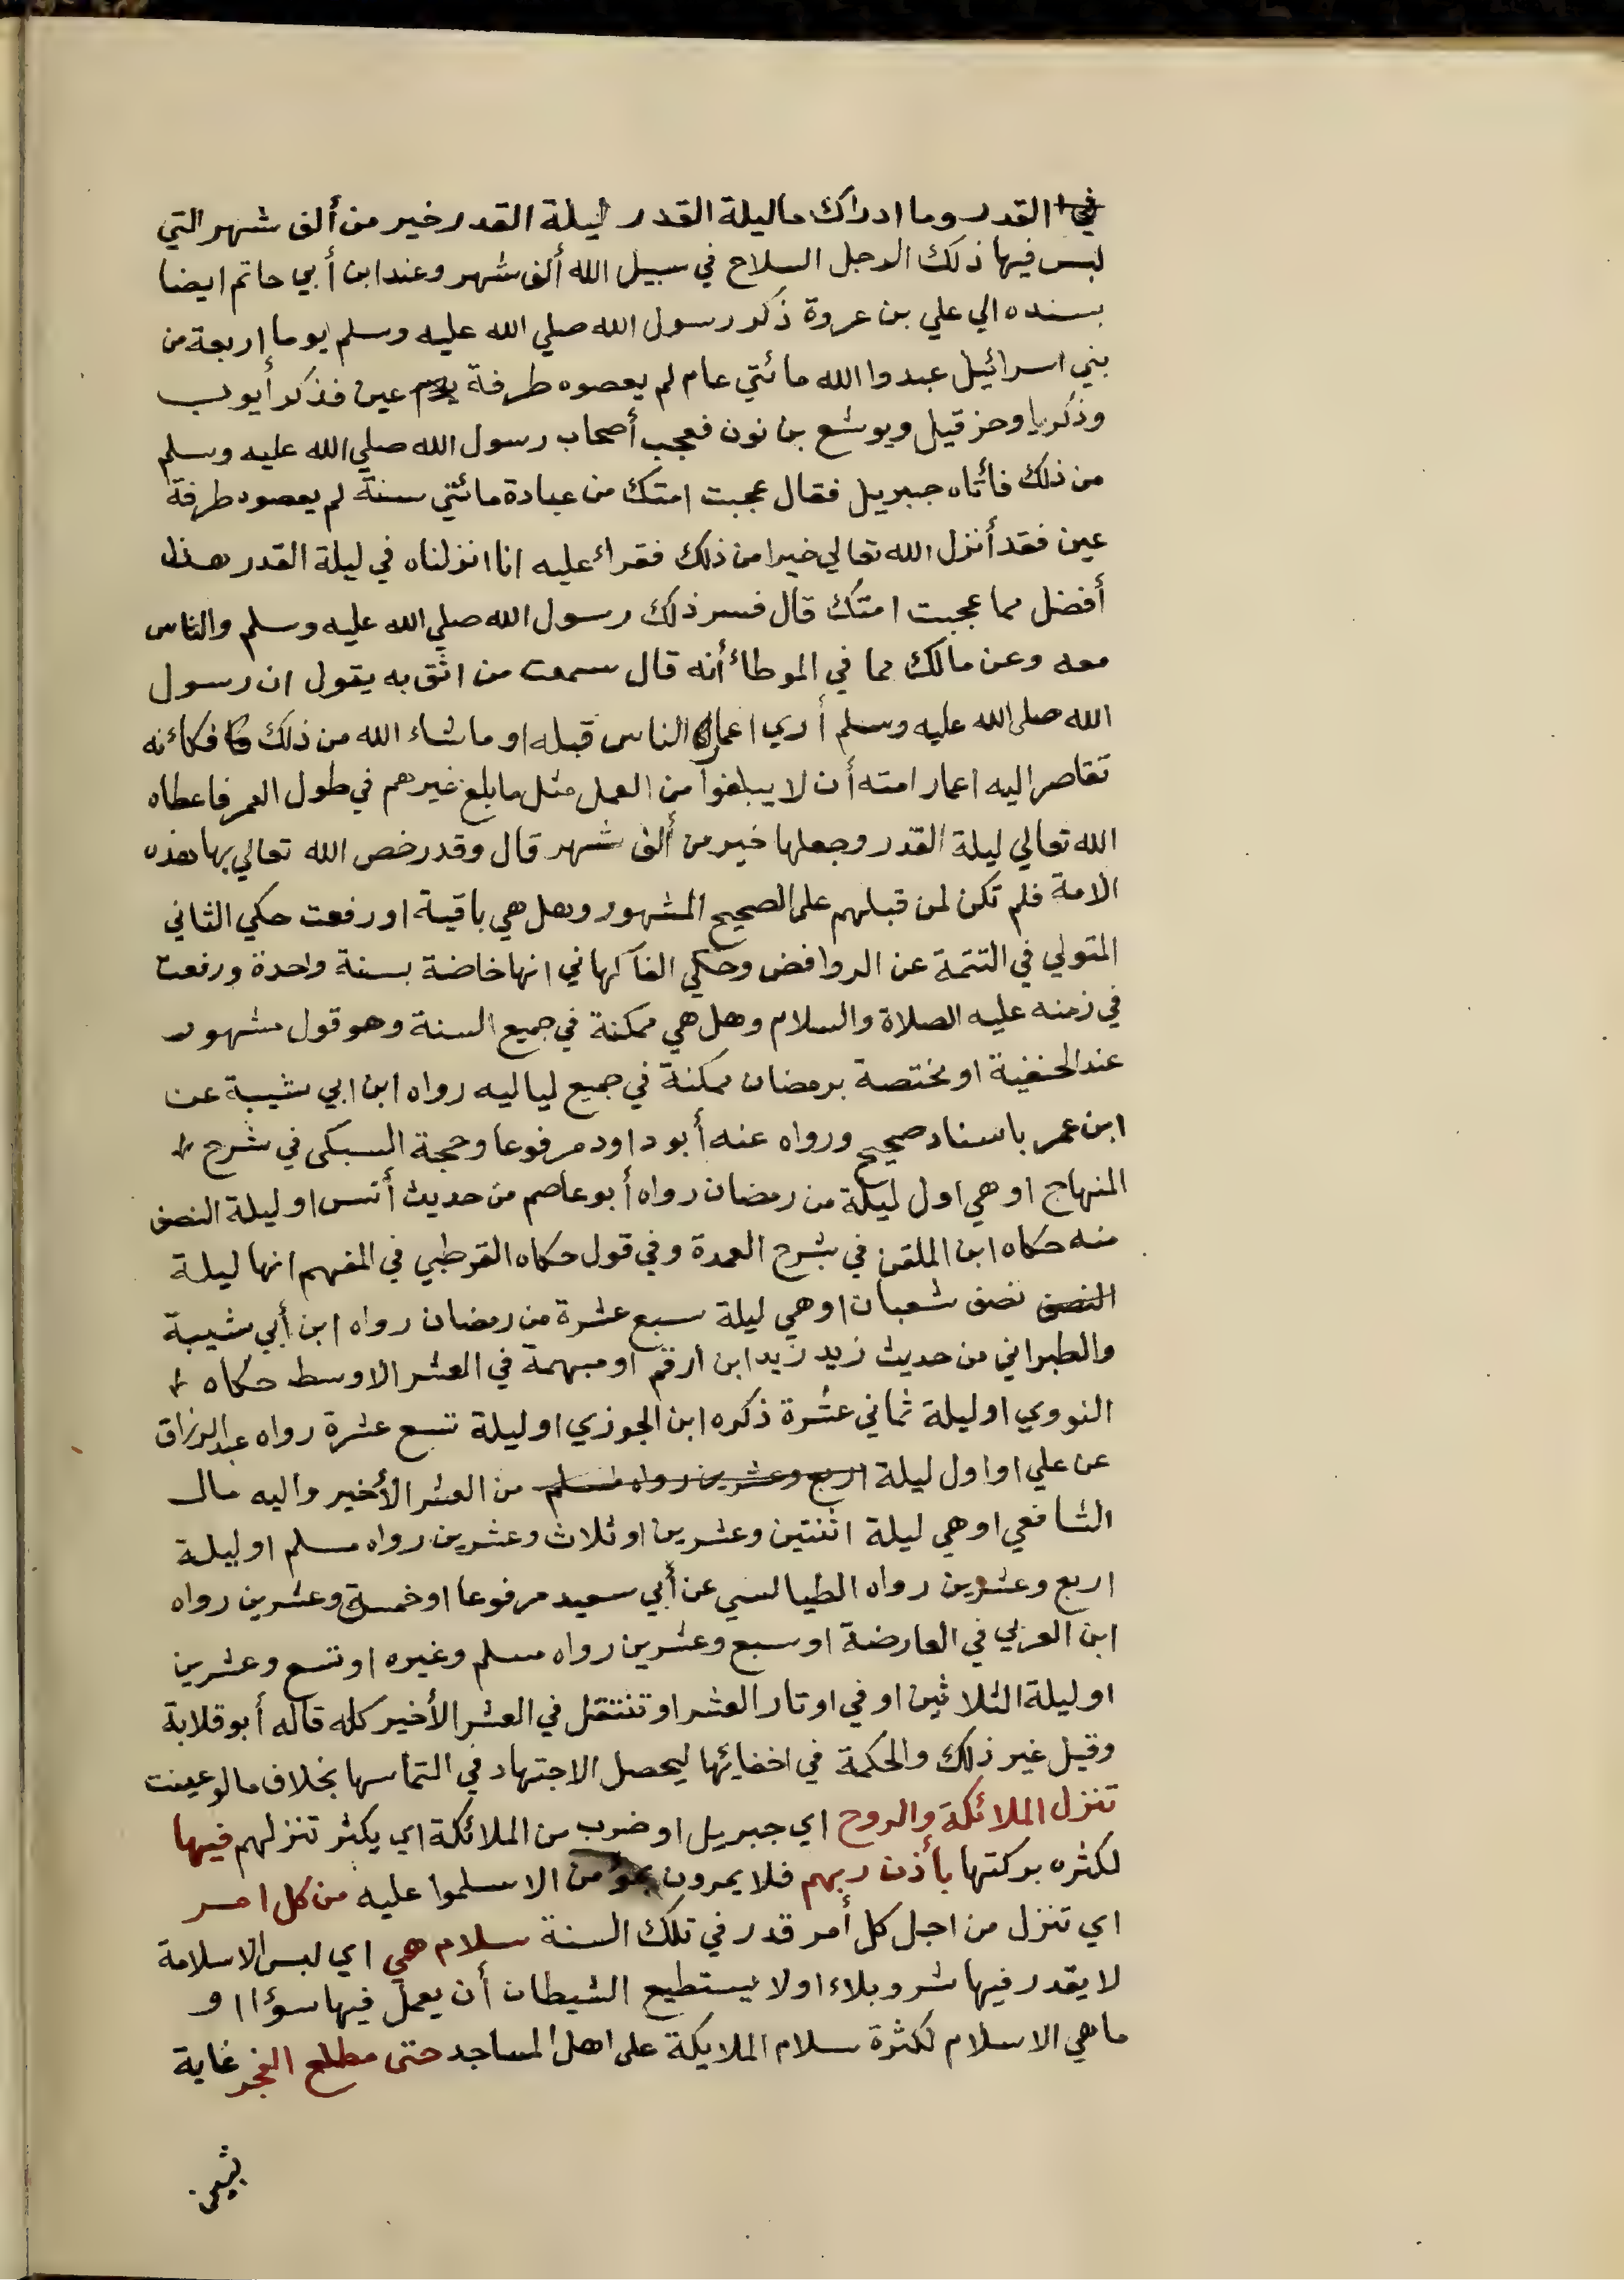 القدر وما ادراك ما ليلة القدر ليلة القدر خير من ألف شهر التي
لبس فيها ذلك الرجل السلاح في سبيل الله ألف شهر وعند ابن أبي حاتم ايضا
بسنده الي علي بن عروة ذكر رسول الله صلي الله عليه وسلم يوما اربعة من
بني اسرائيل عبدوا الله مائتي عام لم يعصوه طرفة عين فذكر أيوب
وذكريا وحزقيل ويوشع بن نون فعجب أصحاب رسول الله صلي الله عليه وسلم
من ذلك فأتاه جبريل فقال عجبت امتك من عبادة مائتي سنة لم يعصوه طرفة
عين فقد أنزل الله تعالي خيرا من ذلك فقراء عليه انا انزلناه في ليلة القدر هذا
أفضل مما عجبت امتك قال فسر ذلك رسول الله صلي الله عليه وسلم والناس
معه وعن مالك مما في الموطاء أنه قال سمعت من اثق به يقول ان رسول
الله صلى الله عليه وسلم أري اعمار الناس قبله او ما شاء الله من ذلك فكاءنه
تقاصر اليه اعمار امته أن لا يبلغوا من العمل مثل ما بلغ غيرهم في طول العمر فاعطاه
الله تعالي ليلة القدر وجعلها خير من ألف شهر قال وقد خص الله تعالي بها هذه
الامة فلم تكن لمن قبلهم على الصحيح المشهور وهل هي باقية او رفعت حكي الثاني
المتولي في التتمة عن الروافض وحكي الفاكهاني انها خاضة بسنة واحدة ورفعت
في زمنه عليه الصلاة والسلام وهل هي ممكنة في جميع السنة وهو قول مشهور
عند الحنفية او مختصة برمضان ممكنة في جميع لياليه رواه ابن ابي شيبة عن
ابن عمر باسناد صحيح ورواه عنه أبو داود مرفوعا وحجة السبكي في شرح
المنهاج او هي اول ليلة من رمضان رواه أبو عاصم من حديث أنس او ليلة النصف
منه حكاه ابن الملقن في شرح العمدة وفي قول حكاه القرطبي في المفهم انها ليلة
النصف نصف شعبان او هي ليلة سبع عشرة من رمضان رواه ابن أبي شيبة
والطبراني من حديث زيد زيد ابن ارقم او مبهمة في العشر الاوسط حكاه
النووي او ليلة ثماني عشرة ذكره ابن الجوزي او ليلة تسع عشرة رواه عبد الرزاق
عن علي او اول ليلة اربع وعشرين رواه مسلم من العشر الأخير واليه مال
الشافعي او هي ليلة اثنتين وعشرين او ثلاث وعشرين رواه مسلم او ليلة
اربع وعشرين رواه الطيالسي عن أبي سعيد مرفوعا او خمسة وعشرين رواه
ابن العربي في العارضة او سبع وعشرين رواه مسلم وغيره او تسع وعشرين
او ليلة الثلاثين او في اوتار العشر او تنتقل في العشر الأخير كله قاله أبو قلابة
وقيل غير ذلك والحكمة في اخفائها ليحصل الاجتهاد في التماسها بخلاف ما لو عينت
تنزل الملائكة والروح اي جبريل او ضرب من الملائكة اي يكثر تنزلهم فيها
لكثره بركتها بأذن ربهم فلا يمرون بمؤمن الا سلموا عليه من كل امر
اي تنزل من اجل كل أمر قدر في تلك السنة سلام هي اي ليس الا سلامة
لا يقدر فيها شر وبلاء او لا يستطيع الشيطان أن يعمل فيها سوؤا او
ما هي الا سلام لكثرة سلام الملايكة على اهل المساجد حتى مطلع الفجر غاية